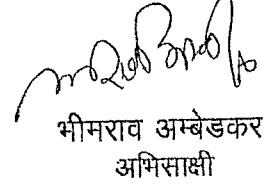 भीमराव अम्बेडकर
अभिसाक्षी